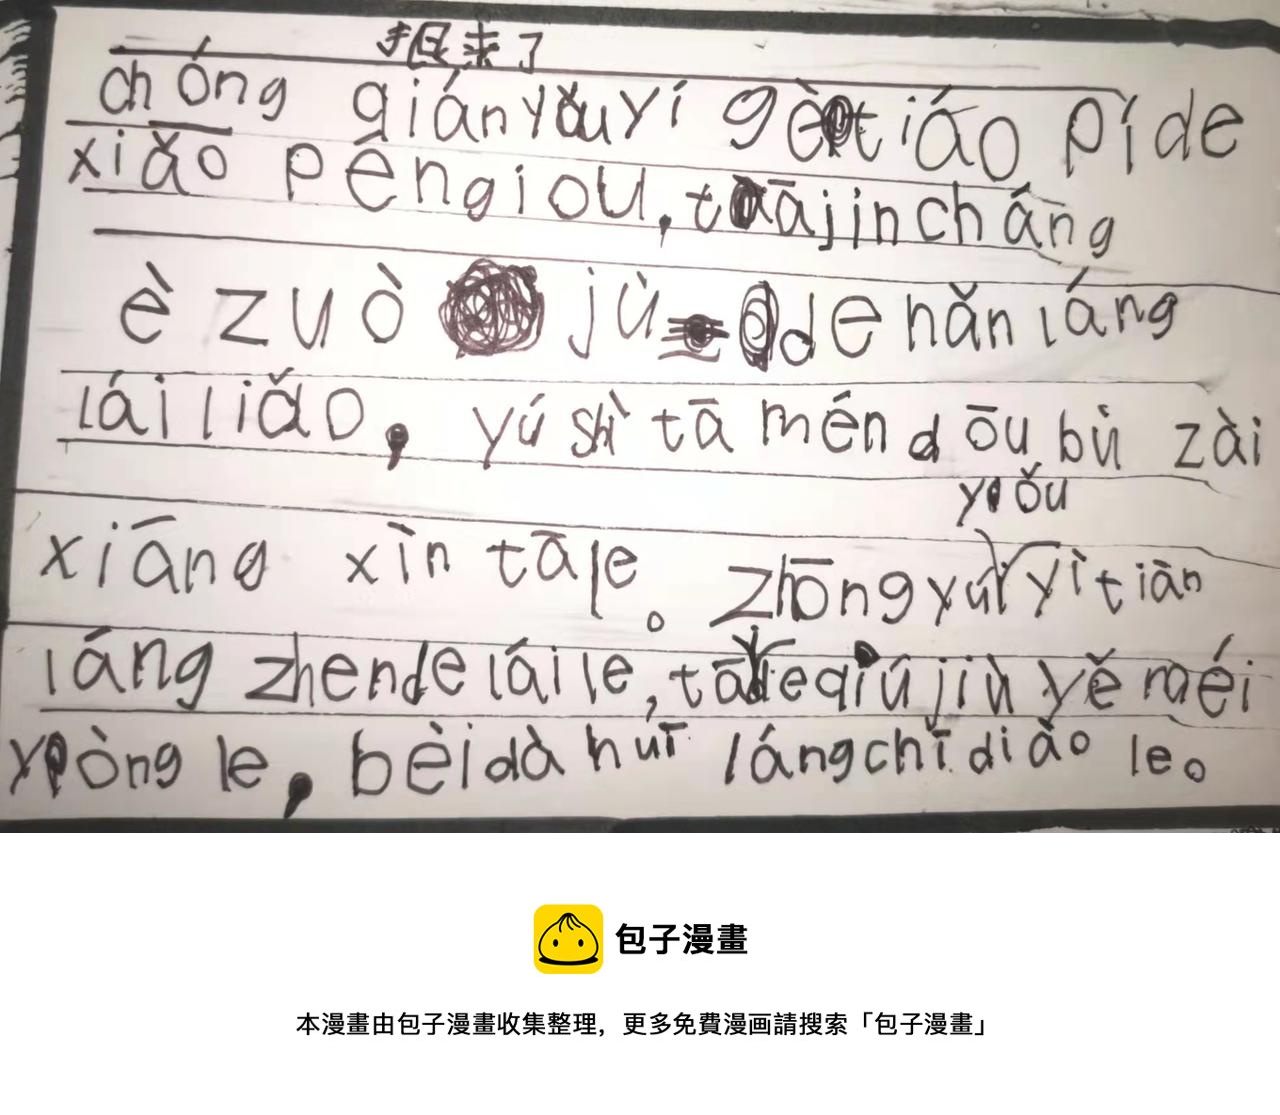 来了
chóng qián yǒu yí gè tiáo pí de
xiǎo péngiou, tā jin cháng
è zuò jù de hǎn láng
lái liǎo, yú shì tā mén dōu bù zài
yǒu
xiāng xìn tā le。 zhōng yú yì tiān
láng zhende lái le, tā qiú jiù yě méi
yòng le, bèi dà huī láng chī diào le。
包子漫畫
本漫畫由包子漫畫收集整理，更多免費漫画請搜索「包子漫畫」